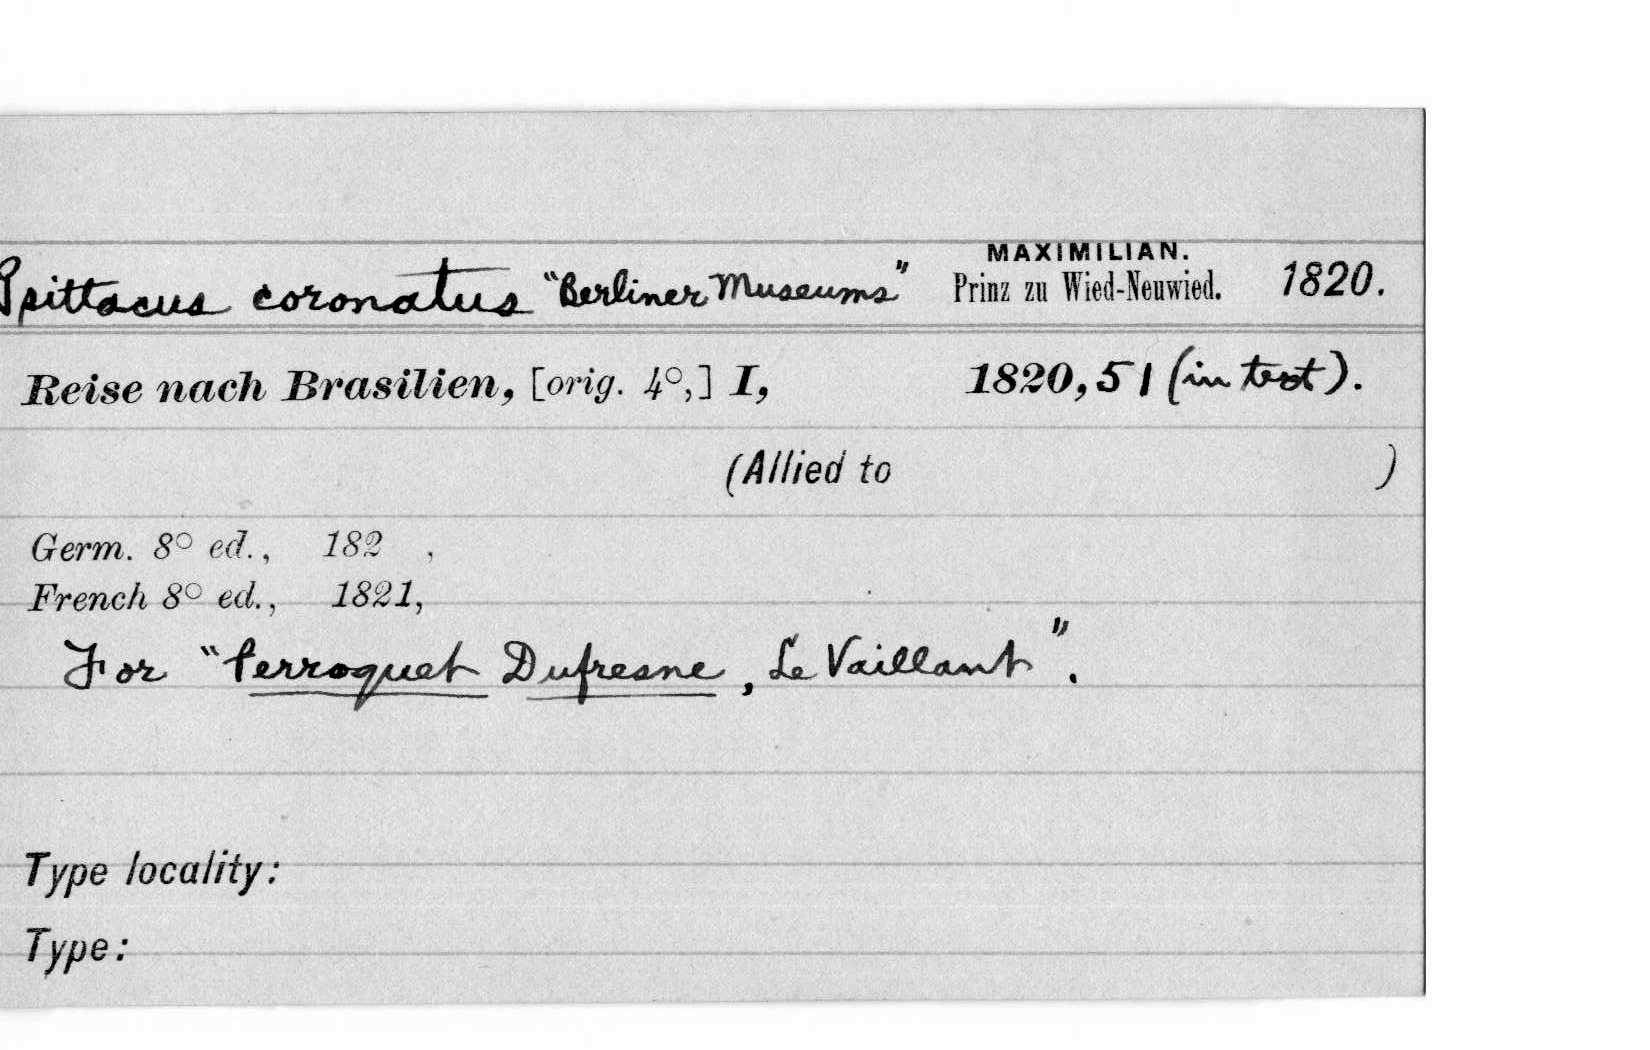 Psittacus coronatus "Berliner Museums" MAXIMILIAN. Prinz zu Wied-Neuwied. 1820.
Reise nach Brasilien, [orig. 4°,] I, 1820, 51 (in text).
(Allied to )
Germ. 8° ed., 182 ,
French 8° ed., 1821,
For "Perroquet Dufresne, Le Vaillant".
Type locality:
Type: